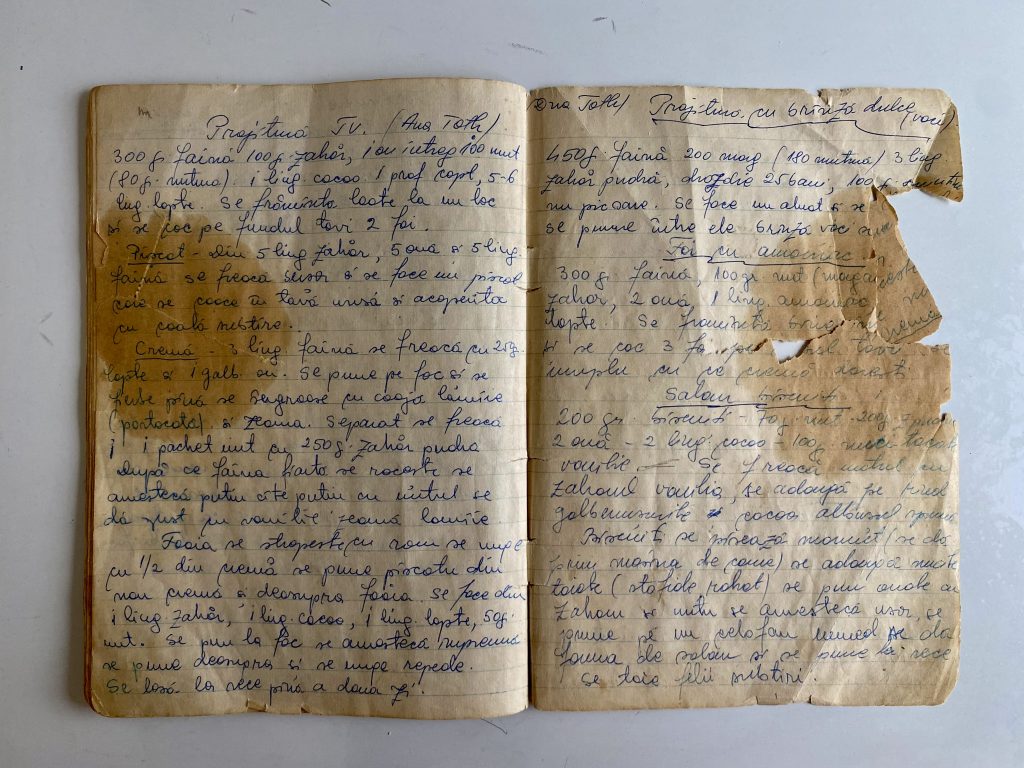 Prăjitură TV. (Ana Toth)
300 g. făină 100 g. zahăr, 1 ou întreg 100 unt
(80 g. untură). 1 ling. cacao 1 praf copt, 5-6
ling. lapte. Se frămîntă toate la un loc
și se coc pe fundul tăvi 2 foi.
Pișcot - din 5 ling zahăr, 5 ouă și 5 ling.
făină se freacă ușor și se face un pișcot
care se coace în tavă unsă și acoperită
cu coală subțire.
Cremă - 3 ling făină se freacă cu 25 g.
lapte și 1 galb. ou. Se pune pe foc și se
fierbe pînă se îngroașe cu coajă lămîie
(portocală) și zeamă. Separat se freacă
1 pachet unt cu 250 g. zahăr pudră
după ce făina fiartă se răcește se
amestecă puțin cîte puțin cu untul se
dă gust cu vanilie zeamă lămîie.
Foaia se stropește cu rom se unge
cu 1/2 din cremă se pune pișcotu din
nou cremă și deasupra foaia. Se face din
1 ling zahăr, 1 ling. cacao, 1 ling. lapte, 5 g.
unt. Se pun la foc se amestecă
se pune deasupra și se unge repede.
Se lasă la rece pînă a doua zi.
Ana Toth) Prăjitura cu brînză dulce (vaci)
450 g. făină 200 marg (180 untură) 3 ling
zahăr pudră, drojdie 25 bani, 100 g.
nu picioare. Se face un aluat și se
se pune între ele brînză vaci
Foi cu amoniac
300 g. făină, 100 gr. unt
zahăr, 2 ouă, 1 ling. amoniac
lapte. Se frămîntă
și se coc 3 foi pe
umplu cu ce cremă dorești
Salam biscuiti
200 gr. biscuiti - unt 200 g
2 ouă - 2 ling. cacao - 100 g.
vanilie - Se freacă untul cu
zahărul vanilia, se adaugă pe rînd
gălbenușurile cacao albușul
Biscuiti se pisează mărunt (se dă
prin mașina de carne) se adaugă
tăiate (stafide rahat) se pun
zahăru și untu se amestecă ușor, se
pune pe un celofan umed se dă
forma de salam și se pune la rece
se taie felii subțiri.